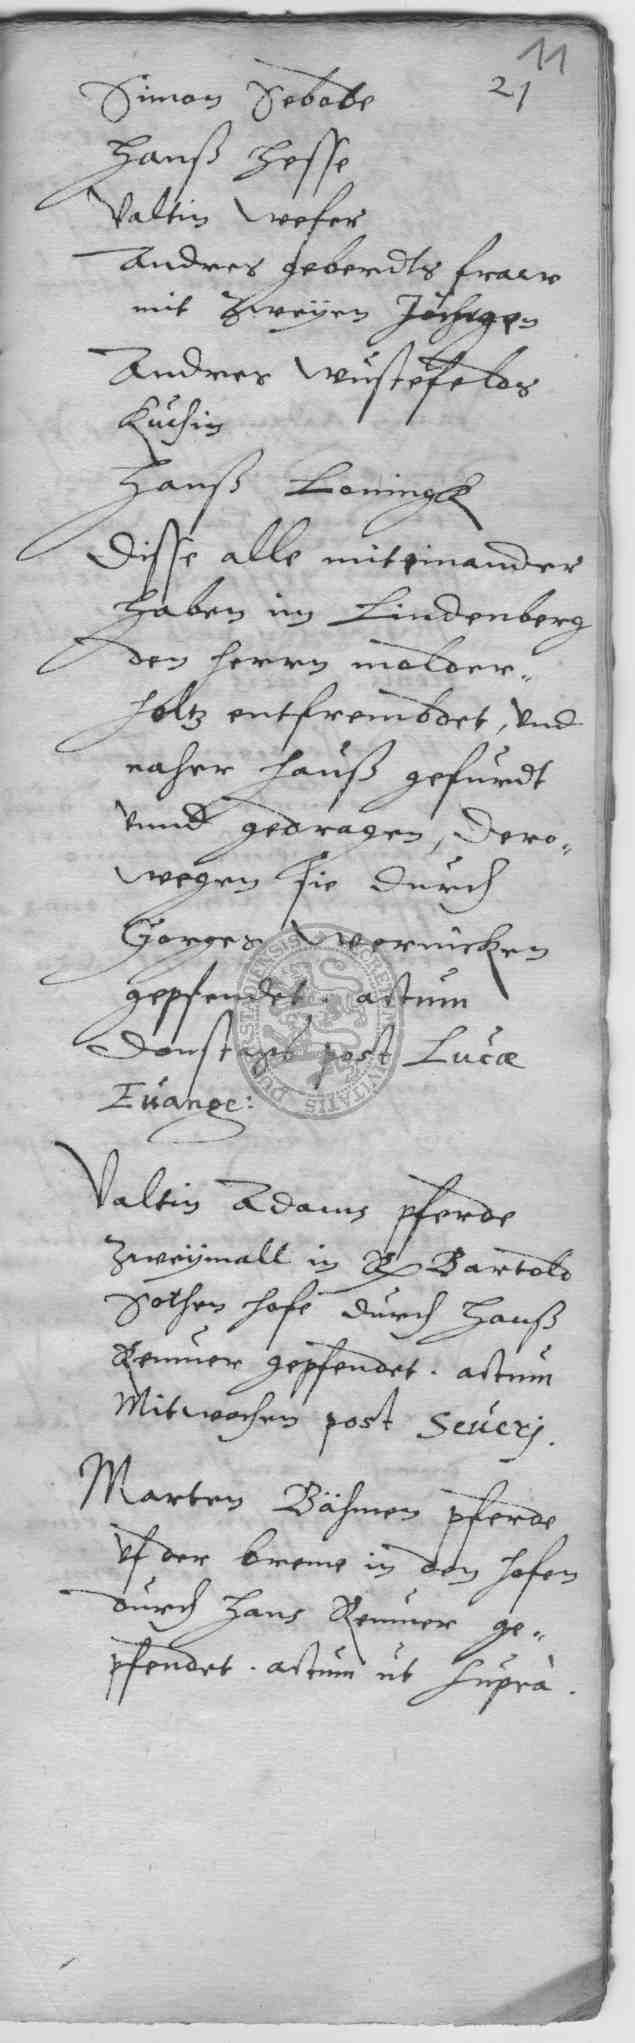 11
21
Simon Sebode
Hanß Hesse
Valtin Wefer
Andres geberdts fraw
mit zweÿen
Andres Wüstefelds
Kuchin
Hanß Loningk
Disse alle miteinander
haben im Lindenberg
den herrn molder-
holtz entfrembdet, vnd
naher hauß gefurdt
vnnd gedragen, Dero-
wegen sie durch
Gorges Wernicken
gepfendet. actum
Donstags post Lucæ
Euange:
Valtin Adams pferde
zweÿmall in Bartold
Sothen hofe durch Hanß
Renner gepfendet. actum
Mitwochen post Seuerj.
Marten Bähmen pferde
vf der breme in den hofen
durch Hans Renner ge-
pfendet. actum ut supra.